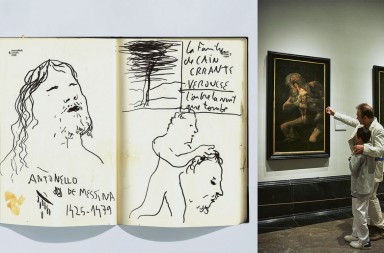 ANTONELLO
DE MESSINA
1425-1479
la Famille
de CAÏN
ERRANTE
VERONESE
l'ombre la nuit
que tombe